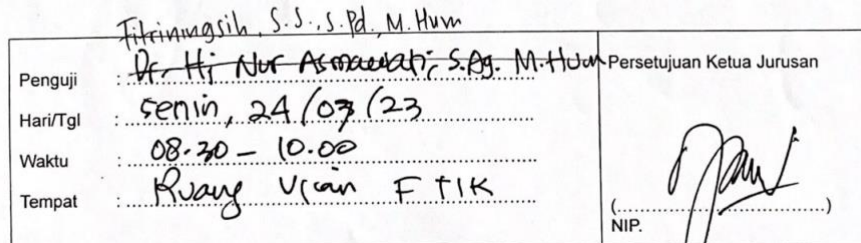 Fitriningsih, S.S., S.Pd., M.Hum
Penguji : Dr. Hj Nur Asmawati, S.Ag. M.Hum
Hari/Tgl : Senin, 24/07/23
Waktu : 08.30 – 10.00
Tempat : Ruang Ujian FTIK
Persetujuan Ketua Jurusan
(....................................)
NIP.